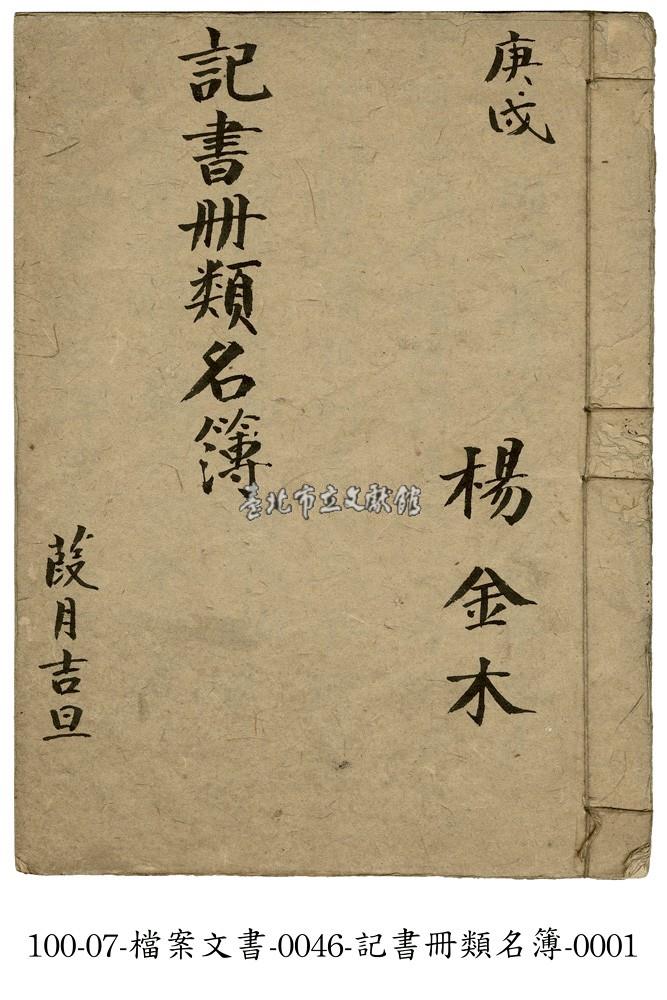 庚戌
楊金木
記書冊類名簿
葭月吉旦
臺北市立文獻館
100-07-檔案文書-0046-記書冊類名簿-0001